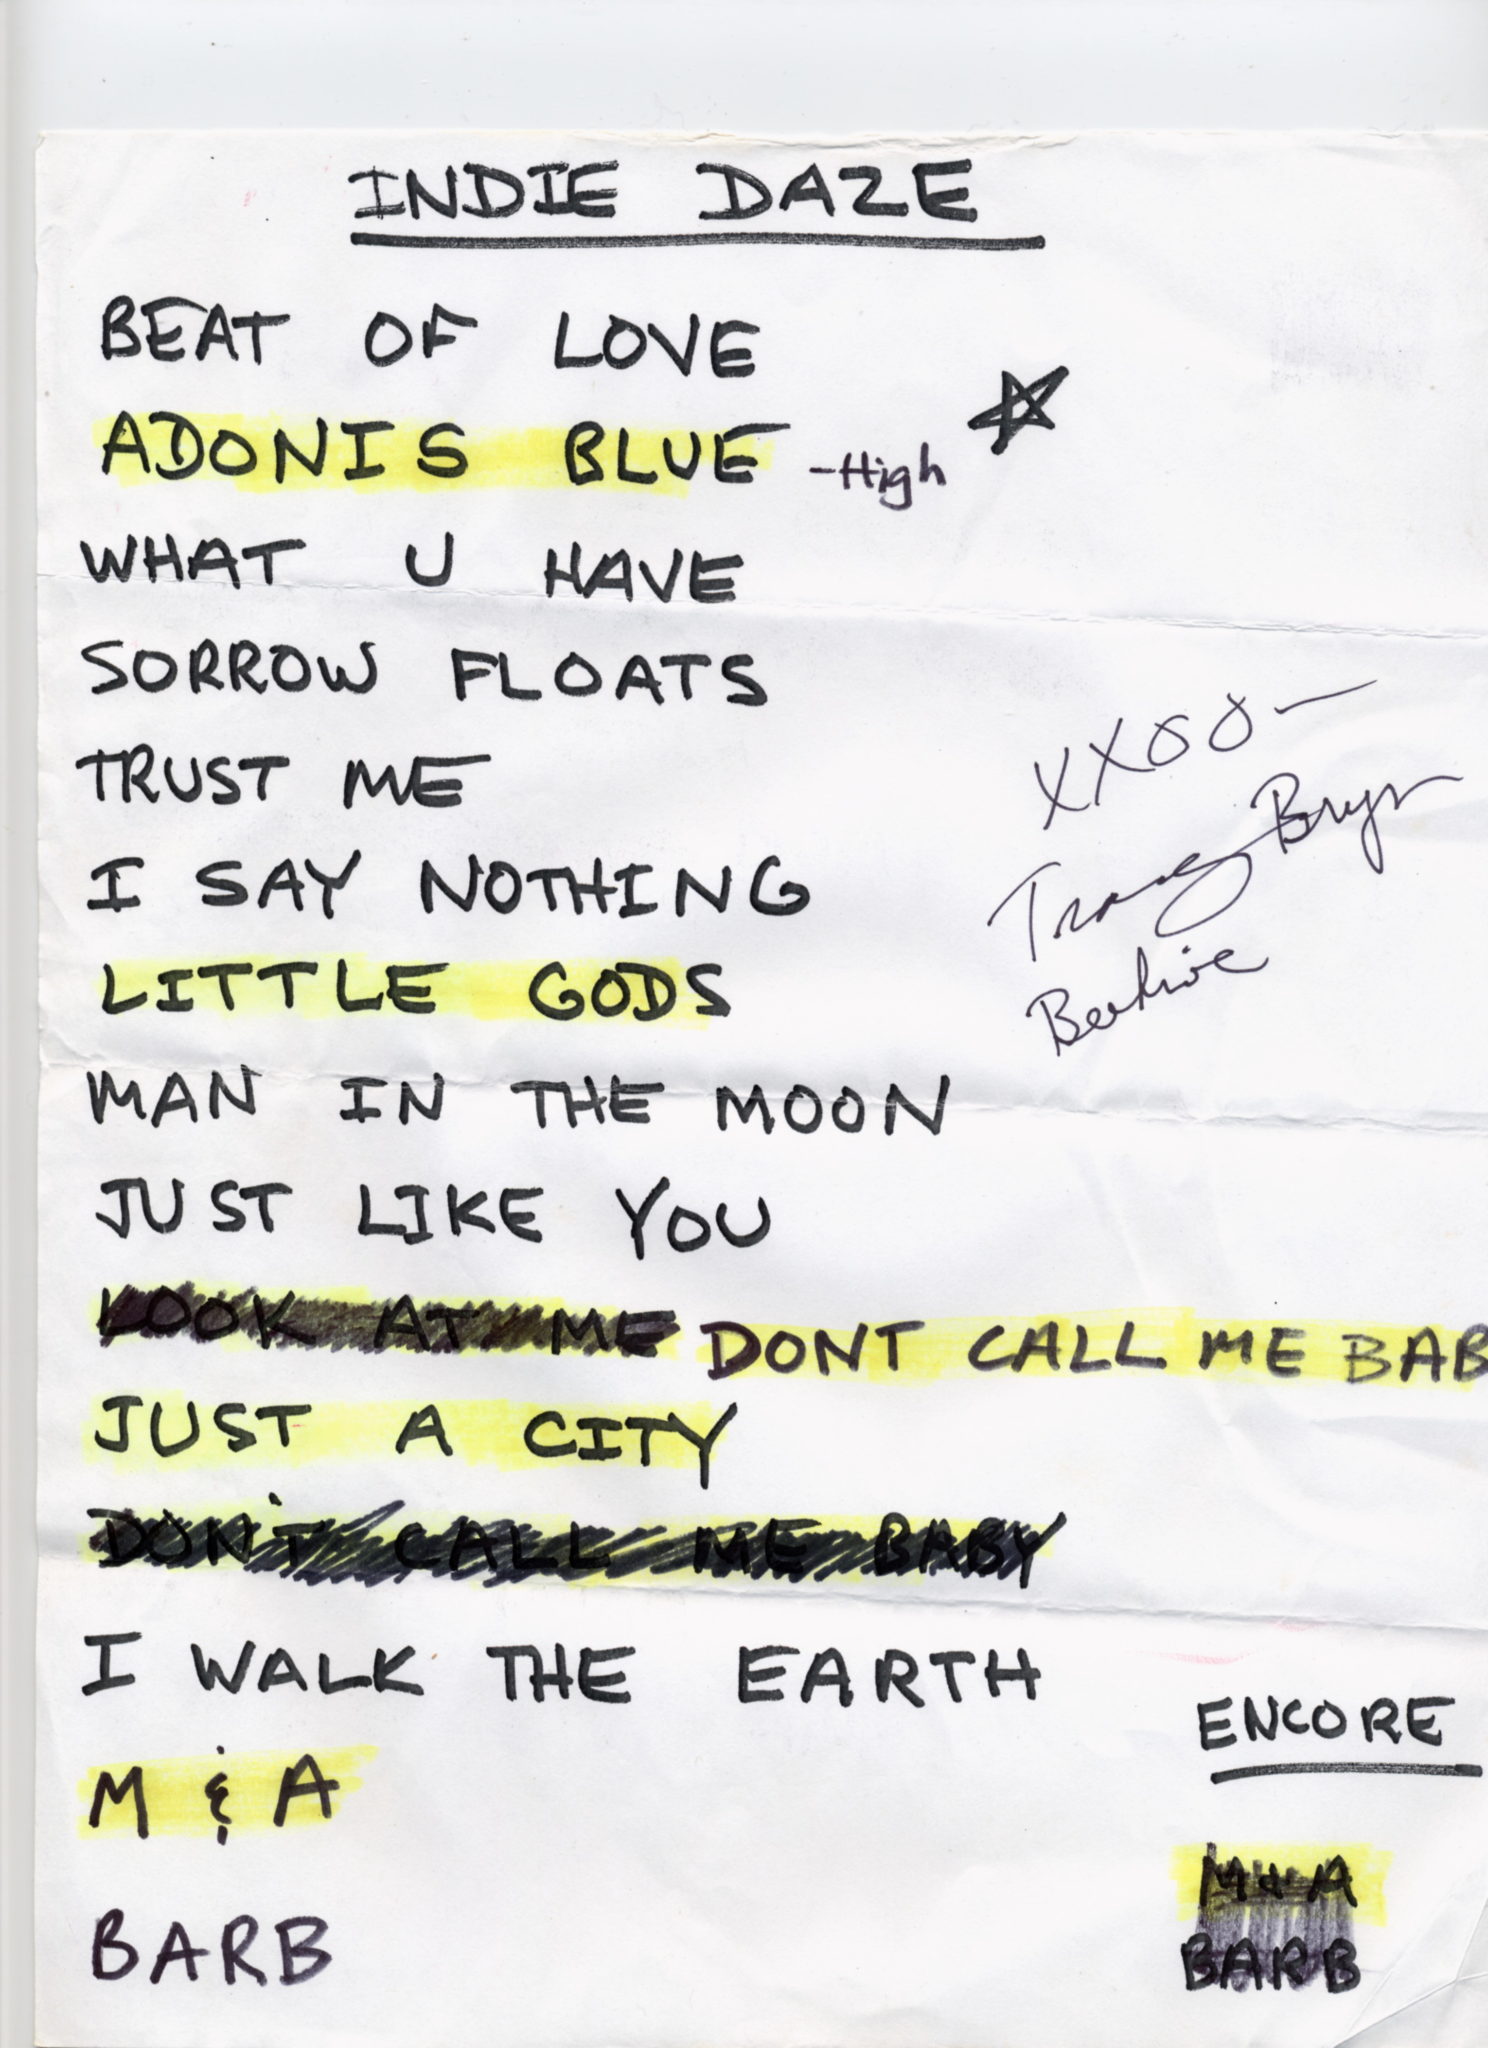 INDIE DAZE
BEAT OF LOVE
ADONIS BLUE -High
WHAT U HAVE
SORROW FLOATS
TRUST ME
I SAY NOTHING
LITTLE GODS
MAN IN THE MOON
JUST LIKE YOU
LOOK AT ME DONT CALL ME BAB
JUST A CITY
DON'T CALL ME BABY
I WALK THE EARTH
M & A
BARB
XXOO-
Tracey Bryn
Beehive
ENCORE
M & A
BARB